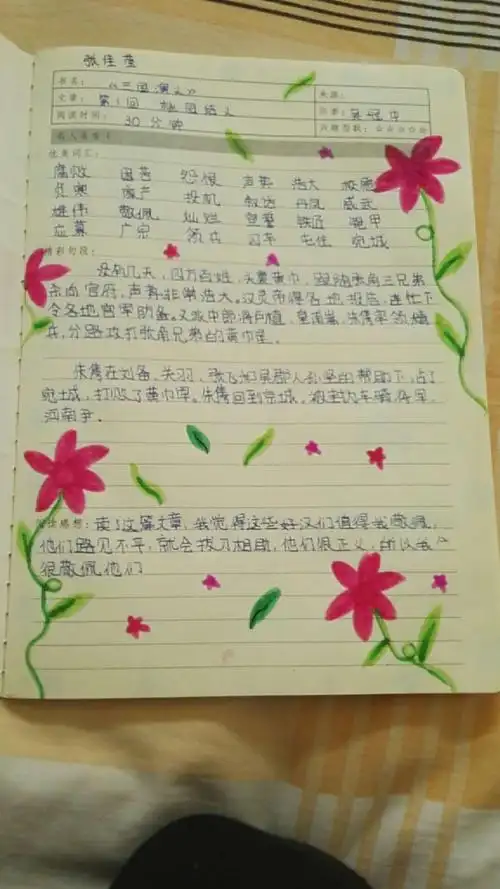 张佳莹
书名： 《三国演义》 来源：
文章： 第1回 桃园结义 作者： 罗冠中
阅读时间： 30分钟 兴趣指数：☆☆☆☆☆
名人名言：
优美词汇：
腐败 怨恨 声势 浩大
家产 投机 叙述 丹凤 威武
雄伟 敬佩 灿烂 皇甫 铁匠 盔甲
应募 广宗 领兵 囚车 屯住 宛城
精彩句段：
没有几天，四方百姓，头裹黄巾，跟随张角三兄弟
杀向官府，声势非常浩大。汉灵帝得各地报告，连忙下
令各地官军防备。又派中郎将卢植、皇甫嵩、朱隽率领精
兵，分路攻打张角兄弟的黄巾军。
朱隽在刘备、关羽、张飞和吴郡人孙坚的帮助下，占了
宛城，打败了黄巾军。朱隽回到京城，被封为车骑将军，
河南尹。
感想：读了这篇文章，我觉得这些好汉们值得我敬佩，
他们路见不平，就会拔刀相助，他们很正义，所以我
很敬佩他们